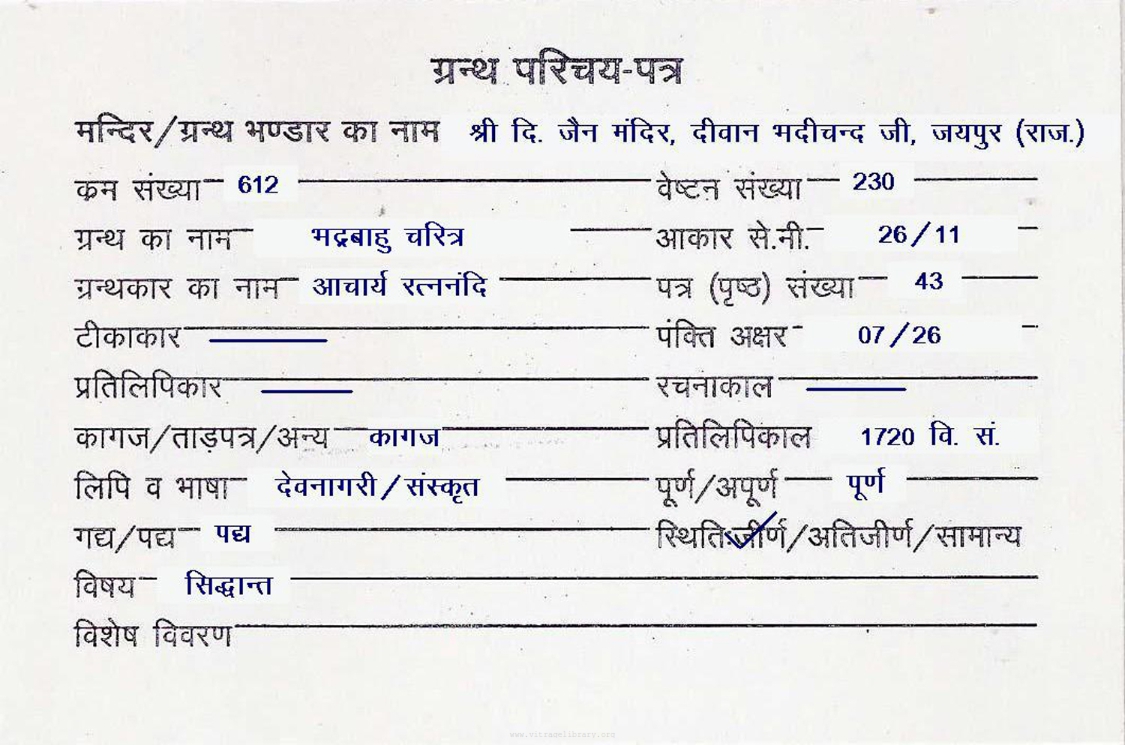 ग्रन्थ परिचय-पत्र
मन्दिर/ग्रन्थ भण्डार का नाम श्री दि. जैन मंदिर, दीवान भदीचन्द जी, जयपुर (राज.)
क्रम संख्या 612 वेष्टन संख्या 230
ग्रन्थ का नाम भद्रबाहु चरित्र आकार से.मी. 26/11
ग्रन्थकार का नाम आचार्य रत्ननंदि पत्र (पृष्ठ) संख्या 43
टीकाकार पंक्ति अक्षर 07/26
प्रतिलिपिकार रचनाकाल
कागज/ताड़पत्र/अन्य कागज प्रतिलिपिकाल 1720 वि. सं.
लिपि व भाषा देवनागरी/संस्कृत पूर्ण/अपूर्ण पूर्ण
गद्य/पद्य पद्य स्थिति:जीर्ण/अतिजीर्ण/सामान्य
विषय सिद्धान्त
विशेष विवरण